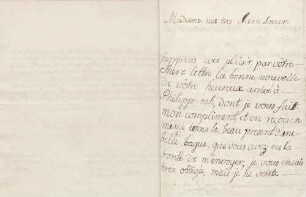 Madame ma tres chere Soeur.
J'apprens avec plaisir par vôtre
chère lettre, la bonne nouvelle
de vôtre heureux arrivé à
Philippi, dont je vous fait
mon compliment, et en recevant
meme tems le beau present d'une
belle bague, que vous avez eu la
bonté de m'envoyer, je vous en suis
tres obligé, mais je